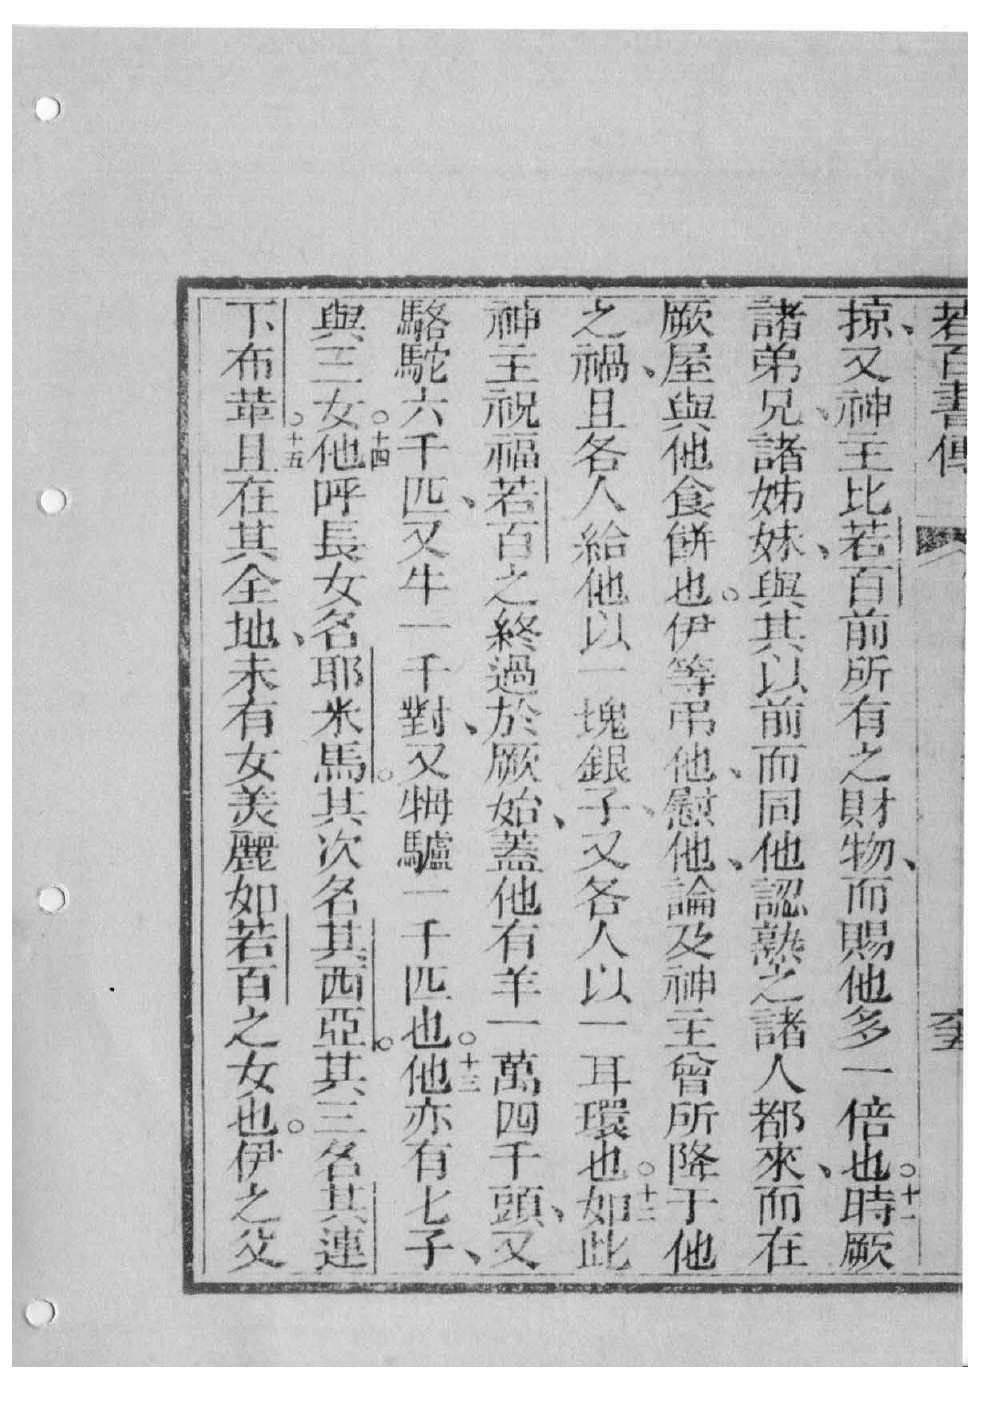 若百書傳
掠、又神主比若百前所有之財物、而賜他多一倍也。十一時厥
諸弟兄、諸姊妹、與其以前而同他認熟之諸人都來、而在
厥屋與他食餅也。伊等弔他、慰他、論及神主曾所降于他
之禍、且各人給他以一塊銀子、又各人以一耳環也。十二如此
神主祝福若百之終過於厥始、蓋他有羊一萬四千頭、又
駱駝六千匹、又牛一千對、又牸驢一千匹也。十三他亦有七子、
與三女。十四他呼長女名耶米馬。其次名其西亞。其三名其連
下布葦。十五且在其全地、未有女美麗如若百之女也。伊之父